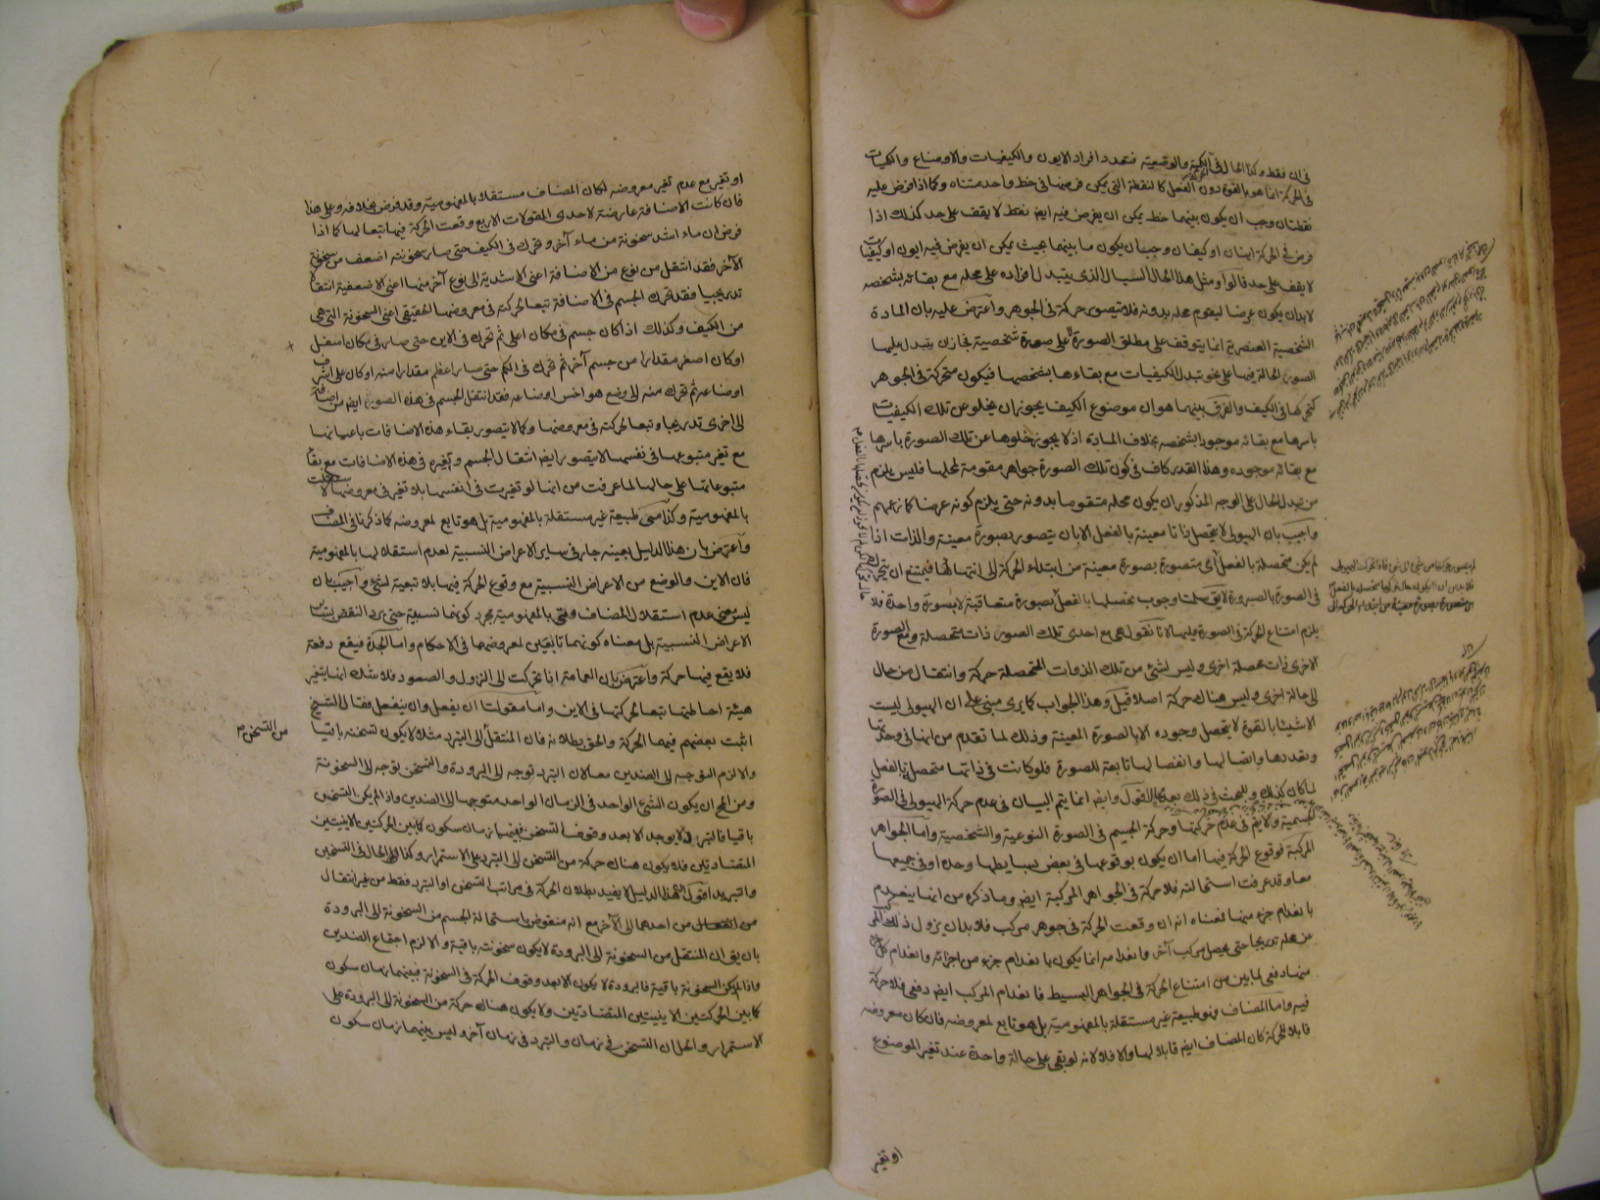 في ان فقط وكذا الحال في الكمية والوضعية فتعدد افراد الايون والكيفيات والاوضاع والكميات
في الحركة انما هو بالقوة دون الفعل كالنقطة التي يمكن فرضها في خط واحد متناه وكما اذا فرض عليه
نقطتان وجب ان يكون بينهما خط يمكن ان يفرض فيه ايض نقط لا يقف على حد كذلك اذا
فرض في الحركة اينان او كيفان وجب ان يكون ما بينهما بحيث يمكن ان يفرض فيه ايون او كيفيات
لا يقف على حد قالوا ومثل هذا الحال السيال الذي يتبدل افراده على محله مع بقائه بشخصه
لا بد ان يكون عرضا ليقوم محله بدونه فلا يتصور حركة في الجوهر واعترض عليه بان المادة
الشخصية العنصرية انما يتوقف على مطلق الصورة لا على صورة شخصية فجاز ان يتبدل عليها
الصور الحالة فيها على نحو تبدل الكيفيات مع بقاءها بشخصها فيكون متحركة في الجواهر
كتحركها في الكيف والفرق بينهما هو ان موضوع الكيف يجوز ان يخلو عن تلك الكيفيات
باسرها مع بقائه موجودا بشخصه بخلاف المادة اذ لا يجوز خلوها عن تلك الصورة باسرها
مع بقائه موجوده وهذا القدر كاف في كون تلك الصورة جواهر مقومة لمحلها فليس يلزم
من تبدل الحال على الوجه المذكور ان يكون محله متقوما بدونه حتى يلزم كونه عرضا كما زعمهم
واجيب بان الهيولى لا يتحصل ذاتا معينة بالفعل الا بان يتصور بصورة معينة والذات اذا
لم يكن متحصلة بالفعل اى متصورة بصورة معينة من ابتداء الحركة الى انتهائها فيمتنع ان يتحرك
في الصورة بالضرورة لا يق سلمنا وجوب تحصلها بالفعل بصورة متعاقبة لا بصورة واحدة فلا
يلزم امتناع الحركة في الصورة عليها لانا نقول هى مع احدى تلك الصور ذات متحصلة ومع الصورة
الاخرى ذات محصلة اخرى وليس لشئ من تلك الذوات المتحصلة حركة وانتقال من حال
الى حالة اخرى وليس هناك حركة اصلا قيل وهذا الجواب كما يرى مبنى على ان الهيولى ليست
الا شيئا بالقوة لا يتحصل وجوده الا بالصورة المعينة وذلك لما تقدم من انها في وحدتها
وتعددها واتصالها وانفصالها تابعة للصورة فلو كانت في ذاتها متحصل بالفعل
لما كان كذلك وللبحث في ذلك بعد مجال اقول وايضا انما يتم البيان في عدم حركة الهيولى في الصورة
الجسمية ولا يتم في عدم حركتها وحركة الجسم في الصورة النوعية والشخصية واما الجواهر
المركبة فوقوع الحركة فيها اما ان يكون بوقوعها في بعض بسايطها وحده او في جميعها
معا وقد عرفت استحالته فلا حركة في الجواهر المركبة ايض وما ذكره من انها ينعدم
بانعدام جزء منها فمعناه انه ان وقعت الحركة في جوهر مركب فلا بد ان يزول ذلك المركب
عن محله تدريجا حتى يحصل مركب آخر وانعدامه انما يكون بانعدام جزء من اجزائه وانعدام كل
منها دفعى لما بين من امتناع الحركة في الجواهر البسيط فانعدام المركب ايض دفعى فلا حركة
فيه واما المضاف فهو طبيعة غير مستقلة بالمفهومية بل هو تابع لمعروضه فان كان معروضه
قابلا للحركة كان المضاف ايض قابلا لها والا فلا لانه لو بقى على حالة واحدة عند تغير الموضوع
او تغير
او تغير مع عدم تغير معروضه لكان المضاف مستقلا بالمفهومية وقد فرض بخلافه وعلى هذا
فان كانت الاضافة عارضة لاحدى المقولات الاربع وقعت الحركة فيها تبعا لها كما اذا
فرض ان ماء اشد سخونة من ماء آخر وتحرك في الكيف حتى صار سخونته اضعف من سخونة
الآخر فقد انتقل من نوع من الاضافة اعنى الاشدية الى نوع آخر منها اعنى الاضعفية انتقالا
تدريجيا فقد تحرك الجسم في الاضافة تبعا لحركته في معروضها الحقيقي اعنى السخونة التي هي
من الكيف وكذلك اذا كان جسم في مكان اعلى ثم تحرك في الاين حتى صار في مكان اسفل
او كان اصغر مقدارا من جسم آخر ثم تحرك في الكم حتى صار اعظم مقدارا منه او كان على اشرف
اوضاعه ثم تحرك منه الى وضع هو اخس اوضاعه فقد انتقل الجسم في هذه الصور ايض من اضافة
الى اخرى تدريجا وتبعا لحركته في معروضها وكما لا يتصور بقاء هذه الاضافات باعيانها
مع تغير متبوعها في نفسها لا يتصور ايض انتقال الجسم وتغيره في هذه الاضافات مع بقاء
متبوعاتها على حالها لما عرفت من انها لو تغيرت في انفسها بلا تغير في معروضها لاستقلت
بالمفهومية وكذا متى طبيعة غير مستقلة بالمفهومية بل هو تابع لمعروضه كما ذكرنا في المضاف
واعترض بان هذا الدليل بعينه جار في ساير الاعراض النسبية لعدم استقلالها بالمفهومية
فان الاين والوضع من الاعراض النسبية مع وقوع الحركة فيها بلا تبعية لشئ واجيب بان
ليس معنى عدم استقلال المضاف ومتى بالمفهومية مجرد كونهما نسبية حتى يرد النقض بسائر
الاعراض النسبية بل معناه كونهما تابعين لمعروضهما في الاحكام واما الجدة فيقع دفعة
فلا يقع فيها حركة واعترض بان العمامة اذا تحركت الى النزول والصعود فلا شك انها يتغير
هيئة احاطتها تبعا لحركتها في الاين واما مقولتا ان يفعل وان ينفعل فقال الشيخ
اثبت بعضهم فيهما الحركة والحق بطلانه فان المنتقل الى التبرد مثلا لا يكون تسخنه باقيا
من التسخن صح
والا لزم التوجه الى الضدين معا لان التبرد توجه الى البرودة والتسخن توجه الى السخونة
ومن المح ان يكون الشئ الواحد في الزمان الواحد متوجها الى الضدين واذا لم يكن التسخن
باقيا فالتبرد لا يوجد الا بعد وقوف التسخن فبينهما زمان سكون كما بين الحركتين الاينيتين
المتضادتين فلا يكون هناك حركة من التسخن الى التبرد على الاستمرار وكذا الحال في التسخين
والتبريد اقول هذا الدليل لا يفيد بطلان الحركة في مراتب التسخن او التبرد فقط من غير انتقال
من احدهما الى الآخر مع انه منقوض باستحالة الجسم من السخونة الى البرودة
بان يق ان المنتقل من السخونة الى البرودة لا يكون سخونته باقية والا لزم اجتماع الضدين
واذا لم يكن السخونة باقية فالبرودة لا يكون الا بعد وقوف الحركة في السخونة فبينهما زمان سكون
كما بين الحركتين الاينيتين المتضادتين ولا يكون هناك حركة من السخونة الى البرودة على
الاستمرار والحل ان التسخن في زمان والتبرد في زمان آخر وليس بينهما زمان سكون